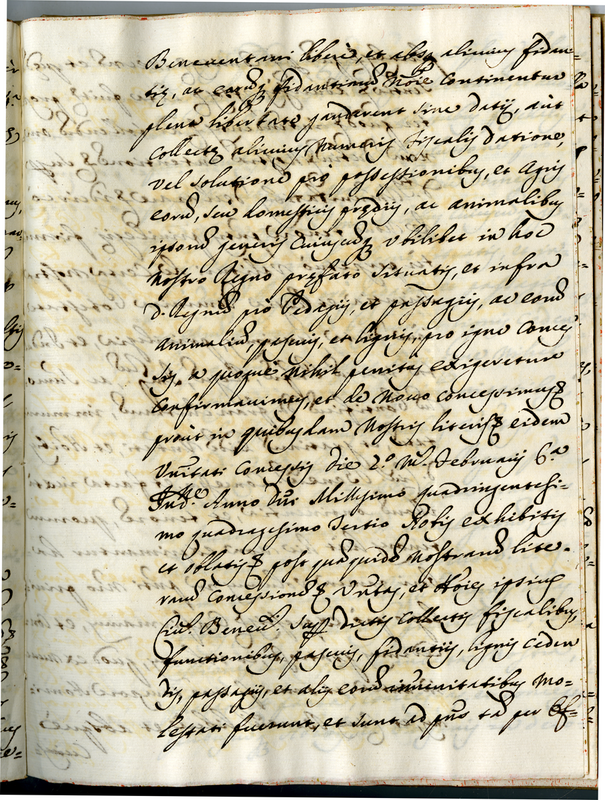 Beneventani liberè, et absq alicuius fidan=
tiæ, ac eorūq fidantiarū noīe continentur
plena libertate gauderent sine datijs, aut
Collectæ alicuius numeris fiscalis datione,
vel solutione pro possessionibus, et Agris
eorū, seu domesticis prædijs, ac animalibus
ipsorū generis cuiuscūq ubilibet in hoc
nostro Regno præfato situatis, et infra
d. Regnū pro Pedagijs, et passagijs, ac eorū
animaliū pascuis, et lignis, pro igne conce
quoque nihil penitus exigeretur
Confirmavimus, et de novo concessimusq
prout in quibusdam nostris literisq eidem
Unītati concessis die 2.º M. Februarij 6.ª
Ind.e Anno Dnī Millesimo quadringentesi=
mo quadragesimo tertio Nobis exhibitis
et oblatisq post quāquidē nostrarū lite=
rarū concessionēq Unītas, et hoīes ipsius
Ciuī. Beneuī. sup.dictis collectis fiscalibus,
functionibus, pascuis, fidantijs, lignis ceden
dis, passagijs, et alijs eorū immunitatibus mo=
lestati fuerunt, et sunt ad pñs tā per